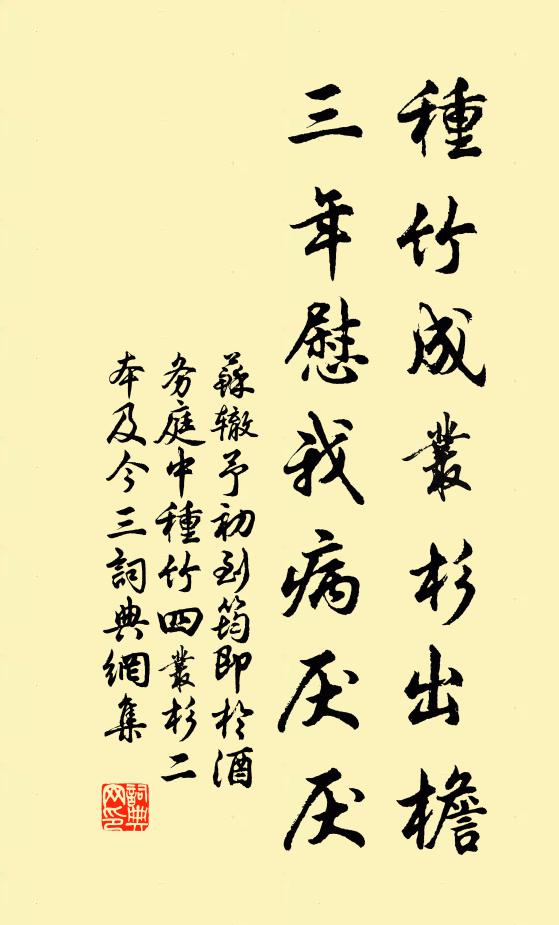 種竹成叢杉出檐
三年慰我病厌厌
蘇辙予初到筠即於酒
务庭中種竹四叢杉二
本及今三詞典網集
詞典
网印